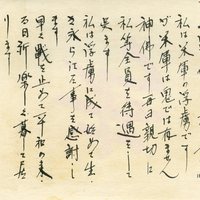 私は米軍の浮虜です
が米軍は鬼では有ません
神佛です毎日親切に
私等全員を待遇をして
呉ます
私は浮虜に成て始めて生
き永らえた事を感謝し
早く戦を止めて平和の来る
る日祈り楽しく暮して居
ります